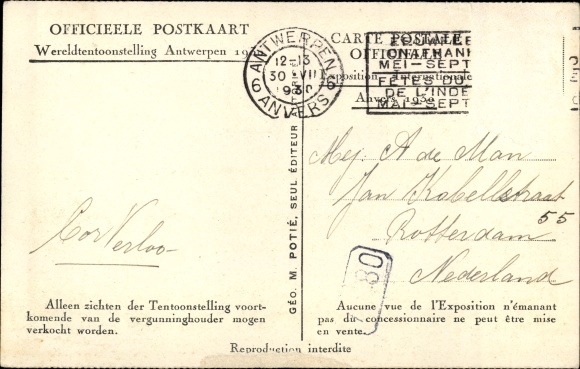 OFFICIEELE POSTKAART
Wereldtentoonstelling Antwerpen
CARTE POSTALE
OFFICIELLE
Exposition Internationale
Anvers 1930
6 ANTWERPEN 6
12-13
30 VII
1930
ANVERS
MEI-SEPT
FÊTES DU
DE L'INDE
MAI-SEPT
GÉO. M. POTIÉ, SEUL ÉDITEUR
Mej. A de Man
Jan Kobellstraat
55
Rotterdam
Nederland
Cor Verloo
80
Alleen zichten der Tentoonstelling voort-
komende van de vergunninghouder mogen
verkocht worden.
Aucune vue de l'Exposition n'émanant
pas du concessionnaire ne peut être mise
en vente.
Reproduction interdite